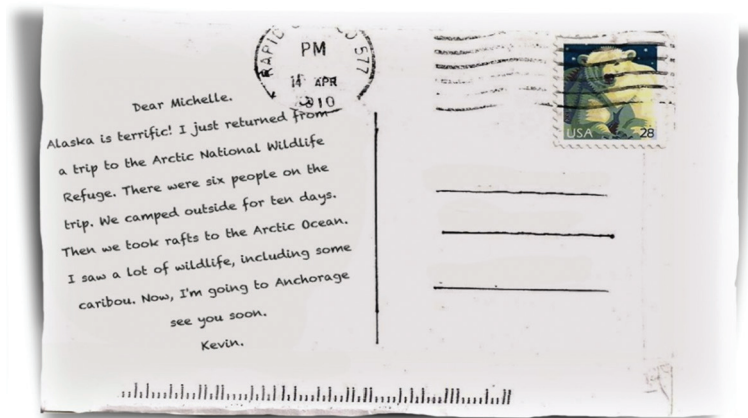 RAPID
577
PM
14 APR
2010
USA 28
Dear Michelle.
Alaska is terrific! I just returned from
a trip to the Arctic National Wildlife
Refuge. There were six people on the
trip. We camped outside for ten days.
Then we took rafts to the Arctic Ocean.
I saw a lot of wildlife, including some
caribou. Now, I'm going to Anchorage
see you soon.
Kevin.